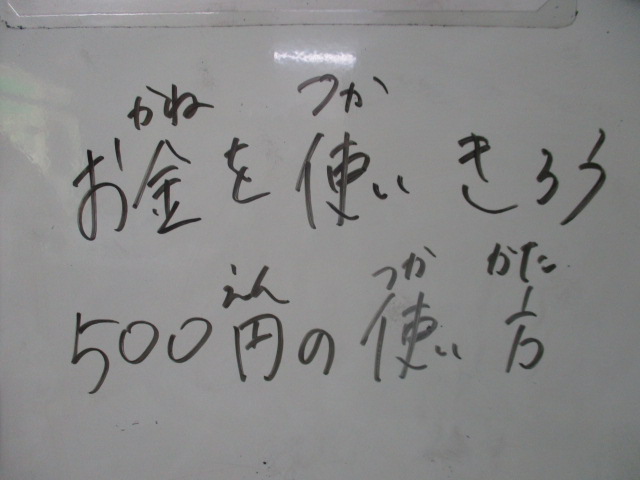 かね つか
お金を使いきろう
えん つか かた
500円の使い方